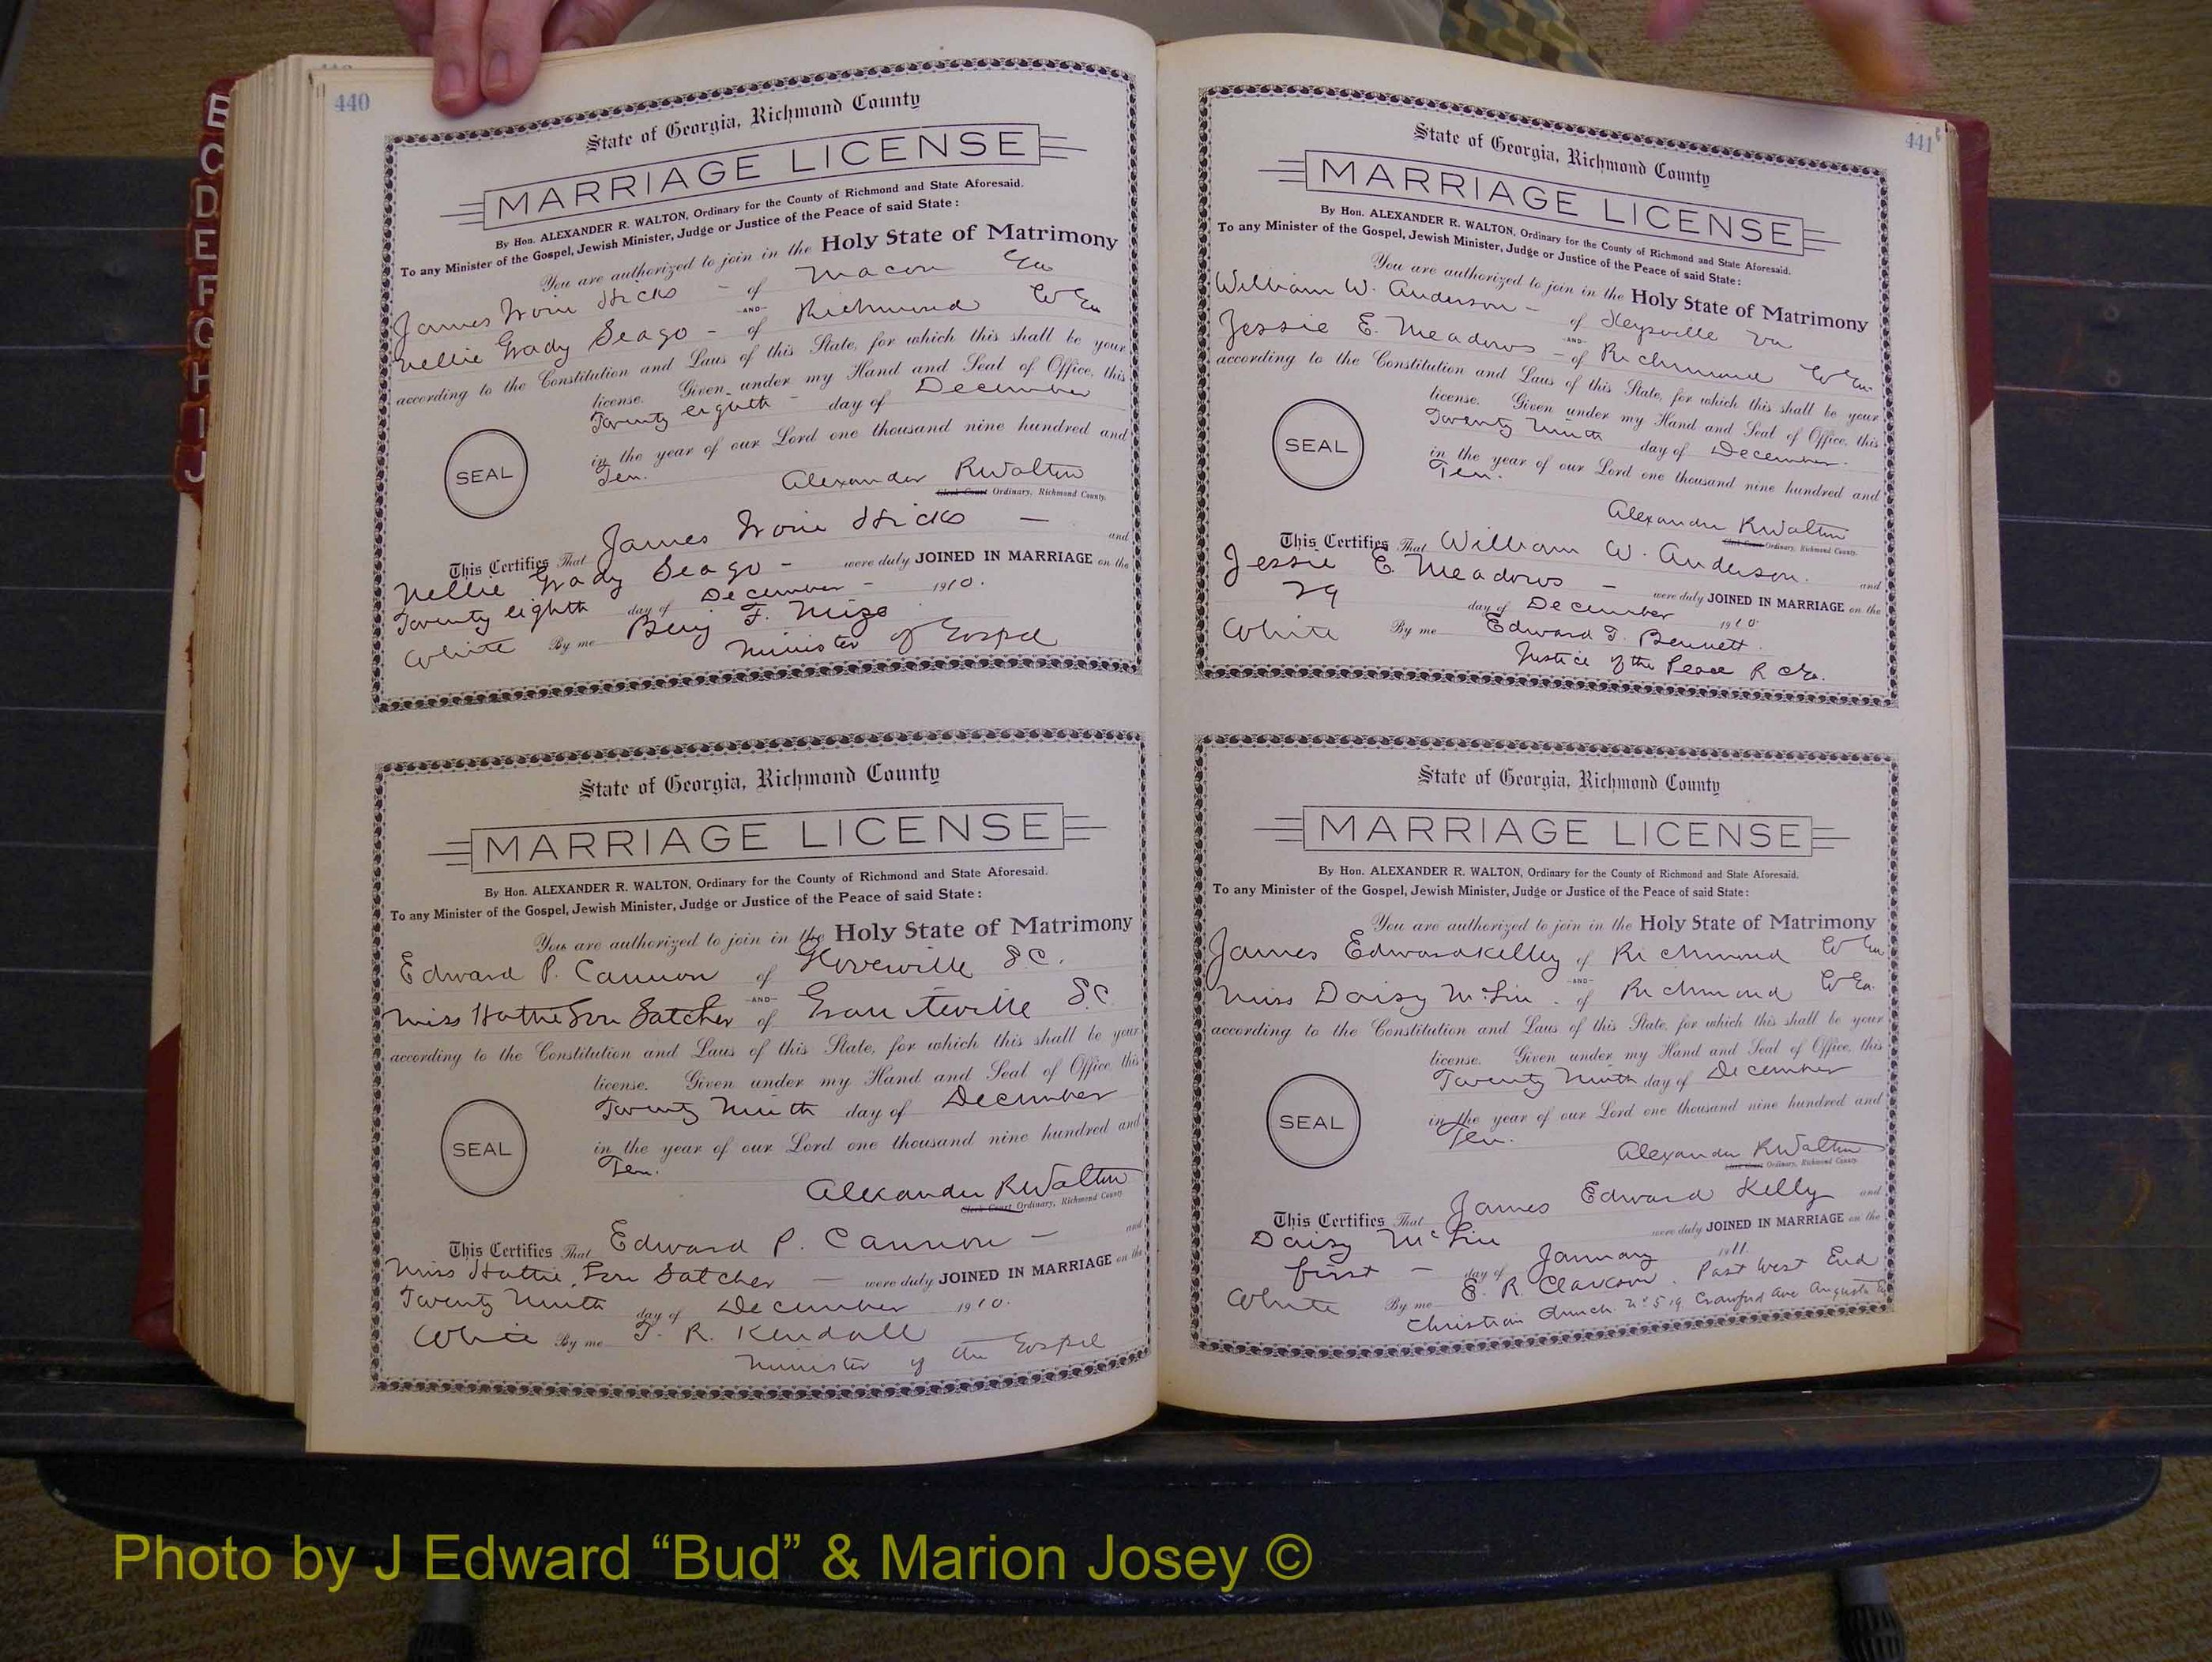 B
C
D
E
F
G
H
I
J
440
State of Georgia, Richmond County
MARRIAGE LICENSE
By Hon. ALEXANDER R. WALTON, Ordinary for the County of Richmond and State Aforesaid.
To any Minister of the Gospel, Jewish Minister, Judge or Justice of the Peace of said State:
You are authorized to join in the Holy State of Matrimony
James Hicks - of Macon Ga
-AND-
Nellie Grady Seago - of Richmond
according to the Constitution and Laws of this State, for which this shall be your
license. Given under my Hand and Seal of Office, this
Twenty eighth - day of December
SEAL
in the year of our Lord one thousand nine hundred and
Ten.
Alexander R Walton
Clerk Court Ordinary, Richmond County.
This Certifies That James Hicks - and
Nellie Grady Seago - were duly JOINED IN MARRIAGE on the
Twenty eighth day of December - 1910.
White By me Benj F. Mizo
Minister of Gospel
State of Georgia, Richmond County
MARRIAGE LICENSE
By Hon. ALEXANDER R. WALTON, Ordinary for the County of Richmond and State Aforesaid.
To any Minister of the Gospel, Jewish Minister, Judge or Justice of the Peace of said State:
You are authorized to join in the Holy State of Matrimony
Edward P. Cannon of S C.
-AND-
Miss Hattie Satcher of Graniteville S.C
according to the Constitution and Laws of this State, for which this shall be your
license. Given under my Hand and Seal of Office, this
Twenty Ninth day of December
SEAL
in the year of our Lord one thousand nine hundred and
Ten.
Alexander R Walton
Clerk Court Ordinary, Richmond County
This Certifies That Edward P. Cannon - and
Miss Hattie Satcher - were duly JOINED IN MARRIAGE on the
Twenty Ninth day of December 1910.
White By me T. R. Kendall
Minister of the Gospel
441
State of Georgia, Richmond County
MARRIAGE LICENSE
By Hon. ALEXANDER R. WALTON, Ordinary for the County of Richmond and State Aforesaid.
To any Minister of the Gospel, Jewish Minister, Judge or Justice of the Peace of said State:
You are authorized to join in the Holy State of Matrimony
William W. Anderson - of Keysville Va
-AND-
Jessie E. Meadows - of Richmond
according to the Constitution and Laws of this State, for which this shall be your
license. Given under my Hand and Seal of Office, this
Twenty Ninth day of December.
SEAL
in the year of our Lord one thousand nine hundred and
Ten.
Alexander R Walton
Clerk Court Ordinary, Richmond County.
This Certifies That William W. Anderson. and
Jessie E. Meadows - were duly JOINED IN MARRIAGE on the
29 day of December 1910.
White By me Edward T. Bennett.
Justice of the Peace R
State of Georgia, Richmond County
MARRIAGE LICENSE
By Hon. ALEXANDER R. WALTON, Ordinary for the County of Richmond and State Aforesaid.
To any Minister of the Gospel, Jewish Minister, Judge or Justice of the Peace of said State:
You are authorized to join in the Holy State of Matrimony
James Edward Kelley of Richmond
-AND-
Miss Daisy of Richmond
according to the Constitution and Laws of this State, for which this shall be your
license. Given under my Hand and Seal of Office, this
Twenty Ninth day of December
SEAL
in the year of our Lord one thousand nine hundred and
Ten.
Alexander R Walton
Clerk Court Ordinary, Richmond County
This Certifies That James Edward Kelly and
Daisy were duly JOINED IN MARRIAGE on the
first - day of January 1911.
White By me E. R. Clarkson. Past West End
Christian Church. No 519 Crawford Ave Augusta Ga
Photo by J Edward “Bud” & Marion Josey ©